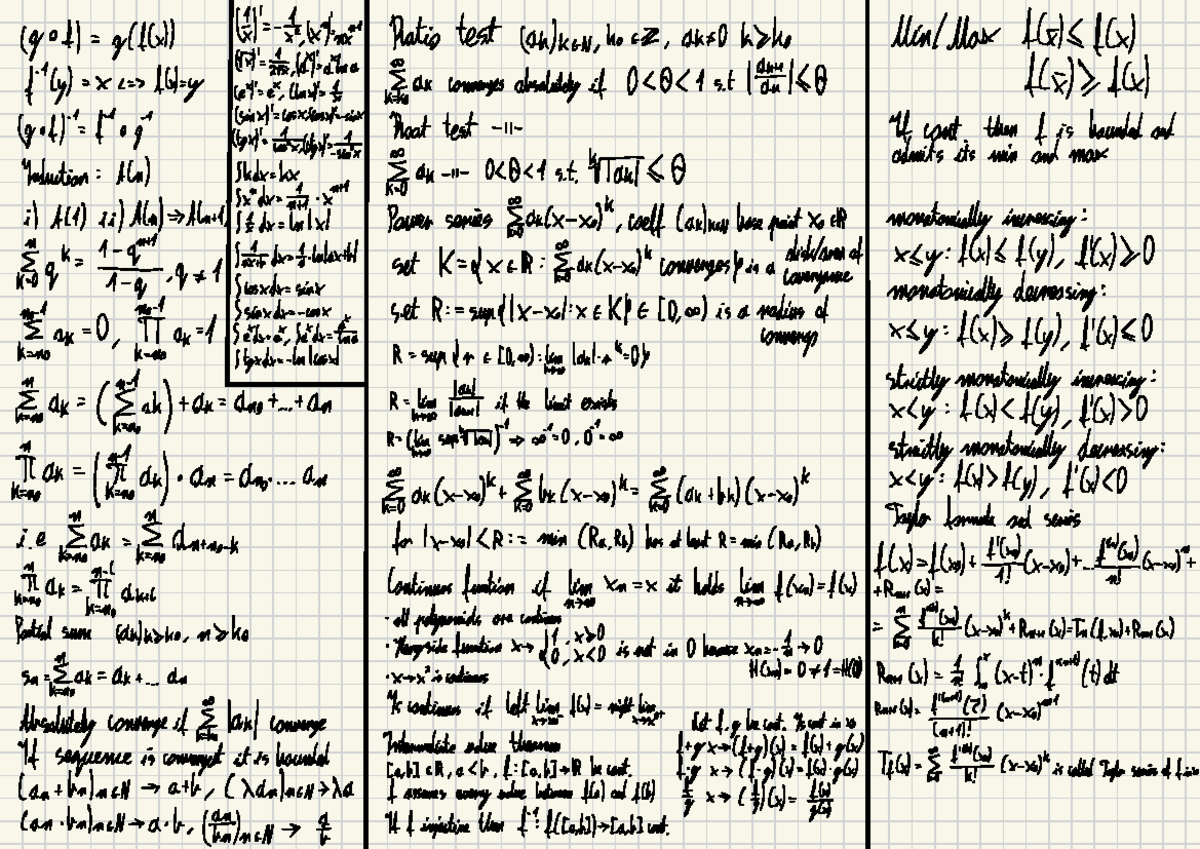 (g∘f) = g(f(x))
f⁻¹(y) = x <=> f(x)=y
(g∘f)⁻¹ = f⁻¹ ∘ g⁻¹
Induction: A(n)
i) A(1) ii) A(n) => A(n+1)
n∑k=0 qᵏ = (1-qⁿ⁺¹)/(1-q), q ≠ 1
n₀-1∑k=n₀ aₖ = 0, n₀-1∏k=n₀ aₖ = 1
n∑k=n₀ aₖ = (n-1∑k=n₀ aₖ) + aₙ = aₙ₀ +...+ aₙ
n∏k=n₀ aₖ = (n-1∏k=n₀ aₖ) · aₙ = aₙ₀ · ... aₙ
i.e n∑k=n₀ aₖ = n∑k=n₀ aₙ₊ₙ₀₋ₖ
Partial sum (aₖ)k≥k₀, n ≥ k₀
sₙ = n∑k=n₀ aₖ = aₖ + ... aₙ
Absolutely converge if ∑ |aₖ| converge
If sequence is converget it is bounded
(aₙ + bₙ)n∈N → a+b, (λaₙ)n∈N → λa
(aₙ · bₙ)n∈N → a·b, (aₙ/bₙ)n∈N → a/b
(1/x)' = -1/x², (xⁿ)' = nxⁿ⁻¹
(√x)' = 1/(2√x), (aˣ)' = aˣ ln a
(eˣ)' = eˣ, (ln x)' = 1/x
(sin x)' = cos x (cos x)' = -sin x
∫k dx = kx
∫xⁿ dx = 1/(n+1) · xⁿ⁺¹
∫1/x dx = ln |x|
∫1/(ax+b) dx = 1/a · ln |ax+b|
∫cos x dx = sin x
∫sin x dx = -cos x
∫eˣ dx = eˣ, ∫aˣ dx = aˣ/ln a
∫tgx dx = -ln |cos x|
Ratio test (aₖ)k∈N, k₀ ∈ Z, aₖ ≠ 0 k ≥ k₀
∞∑k=k₀ aₖ converges absolutely if 0 < θ < 1 s.t |aₖ₊₁/aₖ| ≤ θ
Root test -||-
∞∑k=0 aₖ -||- 0 < θ < 1 s.t. ᵏ√|aₖ| ≤ θ
Power series ∞∑k=0 aₖ(x-x₀)ᵏ, coeff (aₖ)k∈N base point x₀ ∈ R
set K = {x ∈ R : ∞∑k=0 aₖ(x-x₀)ᵏ converges} is a disk/area of convergence
set R := sup{|x-x₀| : x ∈ K} ∈ [0,∞) is a radius of
converg
R = sup {r ∈ [0,∞) : lim |aₖ| · rᵏ = 0}
R = lim |aₙ|/|aₙ₊₁| if the limit exists
R = (lim sup ᵏ√|aₖ|)⁻¹ => ∞⁻¹ = 0, 0⁻¹ = ∞
∞∑k=0 aₖ(x-x₀)ᵏ + ∞∑k=0 bₖ(x-x₀)ᵏ = ∞∑k=0 (aₖ+bₖ)(x-x₀)ᵏ
for |x-x₀| < R := min (Ra, Rb) has at least R = min (Ra, Rb)
Continous function if lim n→∞ xₙ = x it holds lim n→∞ f(xₙ) = f(x)
· all polynomials are continous
function x → {1; x≥0
0; x<0 is not in 0 because xₙ = -1/n → 0
H(xₙ) = 0 ≠ 1 = H(0)
· x→x² is continous
continous if left lim f(x) = right lim
Intermediate value theorem
[a,b] ∈ R, a < b, f: [a,b] → R be cont.
f assumes every value between f(a) and f(b)
If f injective then f⁻¹: f([a,b]) → [a,b] cont.
Let f, g be cont. in x₀
f+g x → (f+g)(x) = f(x) + g(x)
f·g x → (f·g)(x) = f(x)·g(x)
f/g x → (f/g)(x) = f(x)/g(x)
Min/Max f(x̄) ≤ f(x)
f(x̄) ≥ f(x)
If cont. then f is bounded and
admits its min and max
monotonically increasing:
x ≤ y : f(x) ≤ f(y), f'(x) ≥ 0
monotonically decreasing:
x ≤ y : f(x) ≥ f(y), f'(x) ≤ 0
strictly monotonically increasing:
x < y : f(x) < f(y), f'(x) > 0
strictly monotonically decreasing:
x < y : f(x) > f(y), f'(x) < 0
Taylor formula and series
f(x) = f(x₀) + f'(x₀)/1! (x-x₀) + ... f⁽ⁿ⁾(x₀)/n! (x-x₀)ⁿ +
+Rₙ₊₁(x) =
= n∑k=0 f⁽ᵏ⁾(x₀)/k! (x-x₀)ᵏ + Rₙ₊₁(x) = Tₙ(f,x₀) + Rₙ₊₁(x)
Rₙ₊₁(x) = 1/n! ∫ (x-t)ⁿ · f⁽ⁿ⁺¹⁾(t) dt
Rₙ₊₁(x) = f⁽ⁿ⁺¹⁾(ξ)/(n+1)! (x-x₀)ⁿ⁺¹
Tf(x) = ∞∑k=0 f⁽ᵏ⁾(x₀)/k! (x-x₀)ᵏ is called Taylor series of f